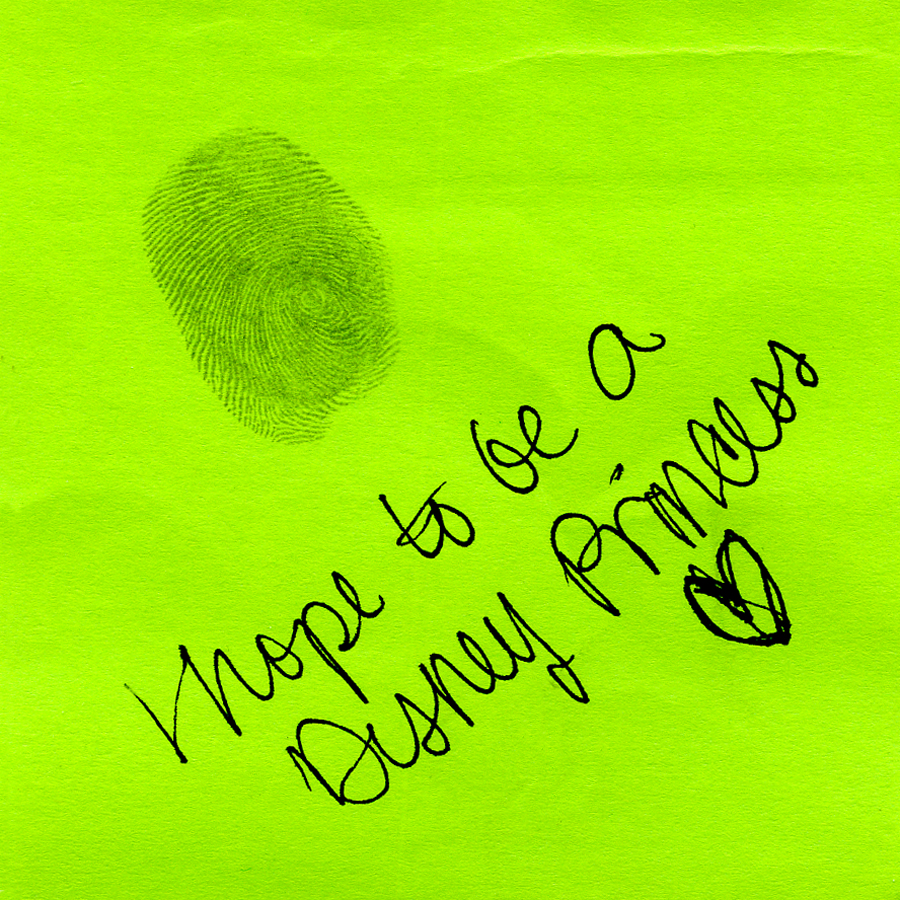 I hope to be a
Disney Princess